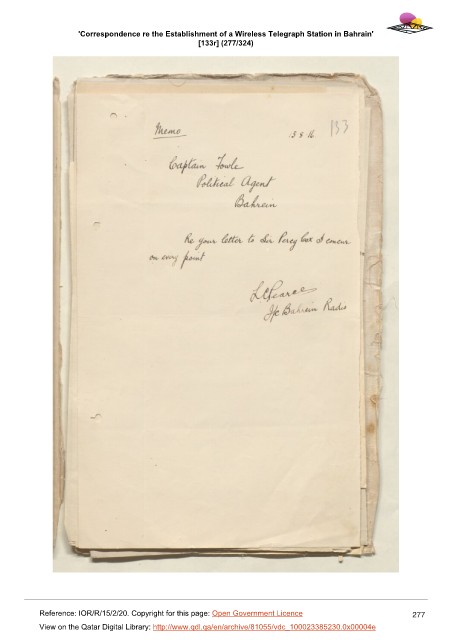 'Correspondence re the Establishment of a Wireless Telegraph Station in Bahrain'
[133r] (277/324)
Memo
13 8 16
133
Captain Fowle
Political Agent
Bahrein
Re your letter to Sir Percy Cox I concur
on every point
I/c Bahrein Radio
Reference: IOR/R/15/2/20. Copyright for this page: Open Government Licence
277
View on the Qatar Digital Library: http://www.qdl.qa/en/archive/81055/vdc_100023385230.0x00004e